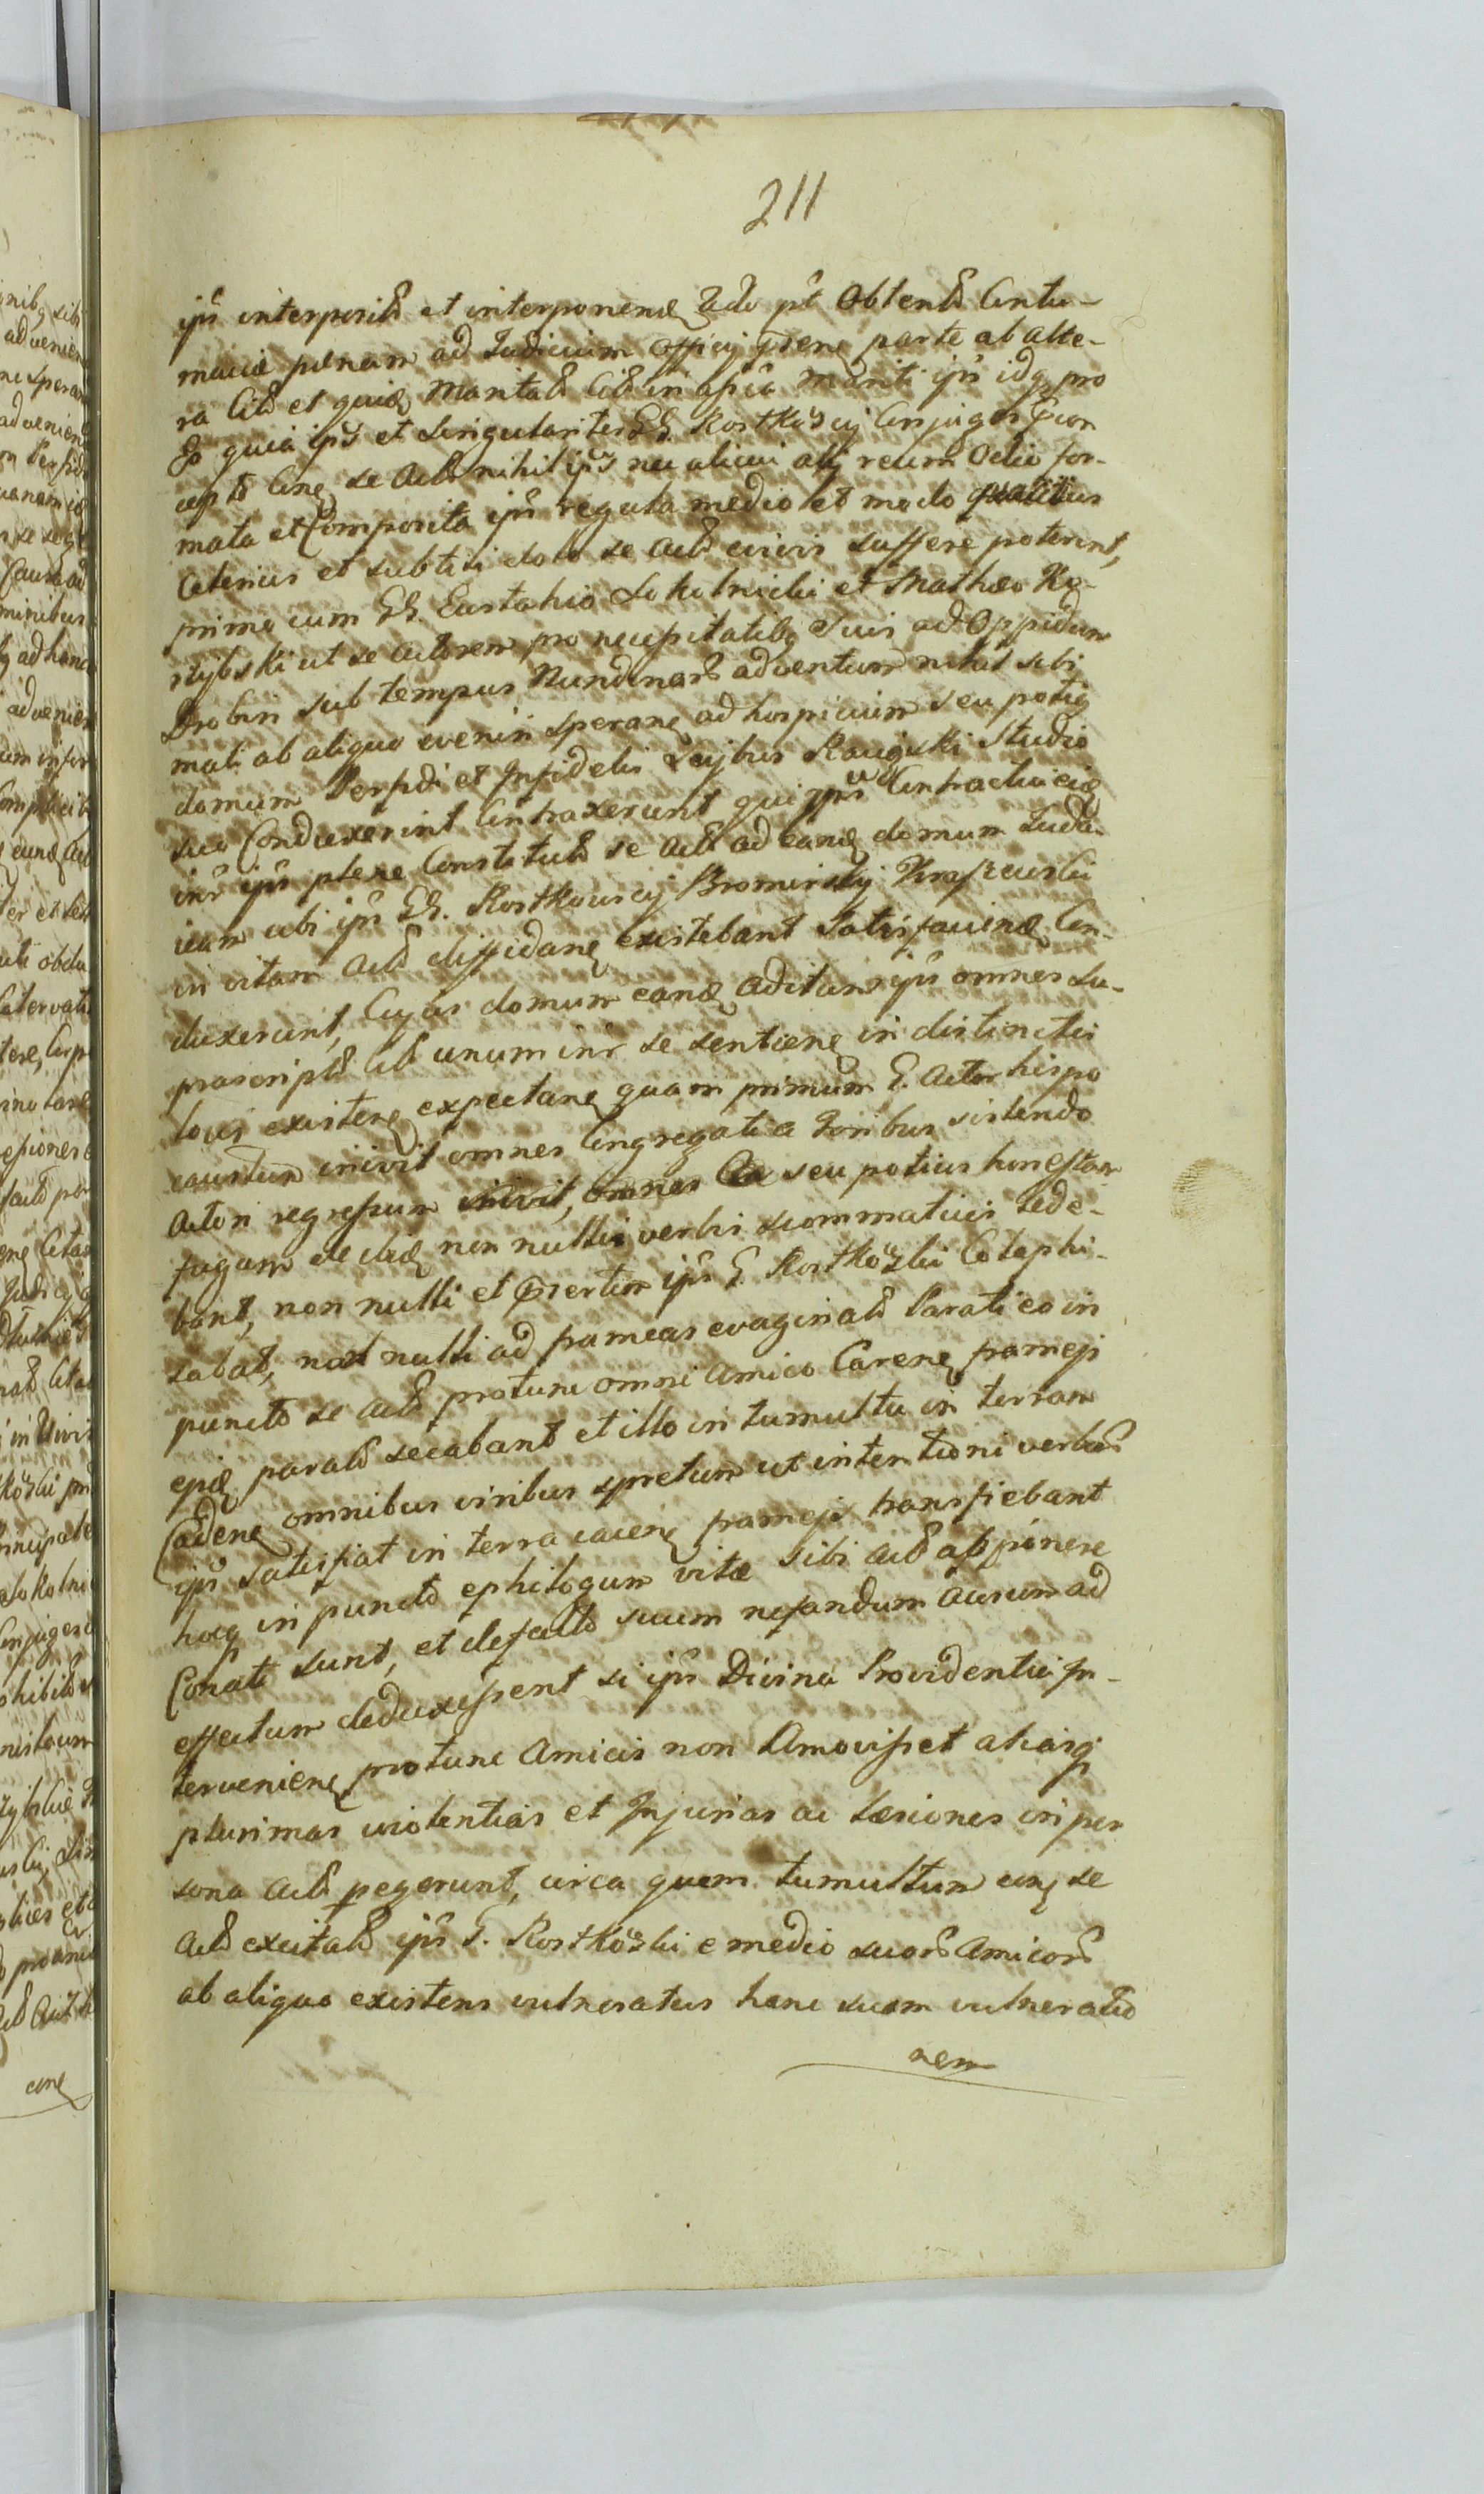 211
ips interposito et interponend Ado pt Obtento Contu-
maciæ pænam ad Judicium Officij pnens parte ab alte-
ra Cito et quid Maritalo Cito in aßia Mariti ips idq pro
Eo quia ips et singulariter GG. Rostkowscij Conjuges
cepto Conq se Acto nihil ips nec alicui alij reum Odio for-
mata et Composita ips regula medio et modo qualitus
Celerius et subtili dolo se Acto e vivis suffere poterint,
primo cum GG. Eustahio Sokolnicki et Mathæo Ko-
rzybski ut se Actorem pro necessitatibq suis ad Oppidum
Drobin sub tempus Nundinars adventum nihil sibi
mali ab aliquo eveniri sperans ad hospicium seu potiq
domum Perfidi et Infidelis Leybus Raciąski Studio
suo Conduxerint Contraxerunt qui ips Contractui eid
inr ips plene Constituto se Acto ad eand domum Juda-
icam ubi ips GG. Rostkowscij Bromirscij Kraszewski
in vitam Acto diffidans existebant Satisfaciend Con-
duxerunt, Cujus domum eand aditum ips omnes su-
prascripto Cito unum inr se sentiens in distinctis
locis existens expectans quam primum G. Actor hispo
caustum inivit omnes Congregati a foribus sistendo
Actori regressum inivit, omnes Ca seu potius honestam
fugam non nulli verbis scommaticis Lede-
bant, non nulli et pnertim ips G. Rostkowski Colaphi-
sabat, non nulli ad frameas evaginato Parati eo in
puncto se Acto protunc omni Amico Carens frameis
epiq parato secabant et illo in tumultu in terram
Cadens omnibus viribus spretum ut intentioni verbars
ips satisfiat in terra iacens frameis transfiebant
hocq in puncto ephilogum vitæ sibi Acto apponere
Conati sunt, et defacto suum nefandum ausum ad
effectum deduxissent si ips Divina Providentia in-
terveniens protunc Amicis non Amovisset aliasq
plurimas violentias et Injurias ac Læsiones in per
sona Acto pegerunt, circa quem tumultum conq se
Acto excitato ips G. Rostkowski e medio suors Amicors
ab aliquo existens vulneratus hanc suam vulneratio
nem